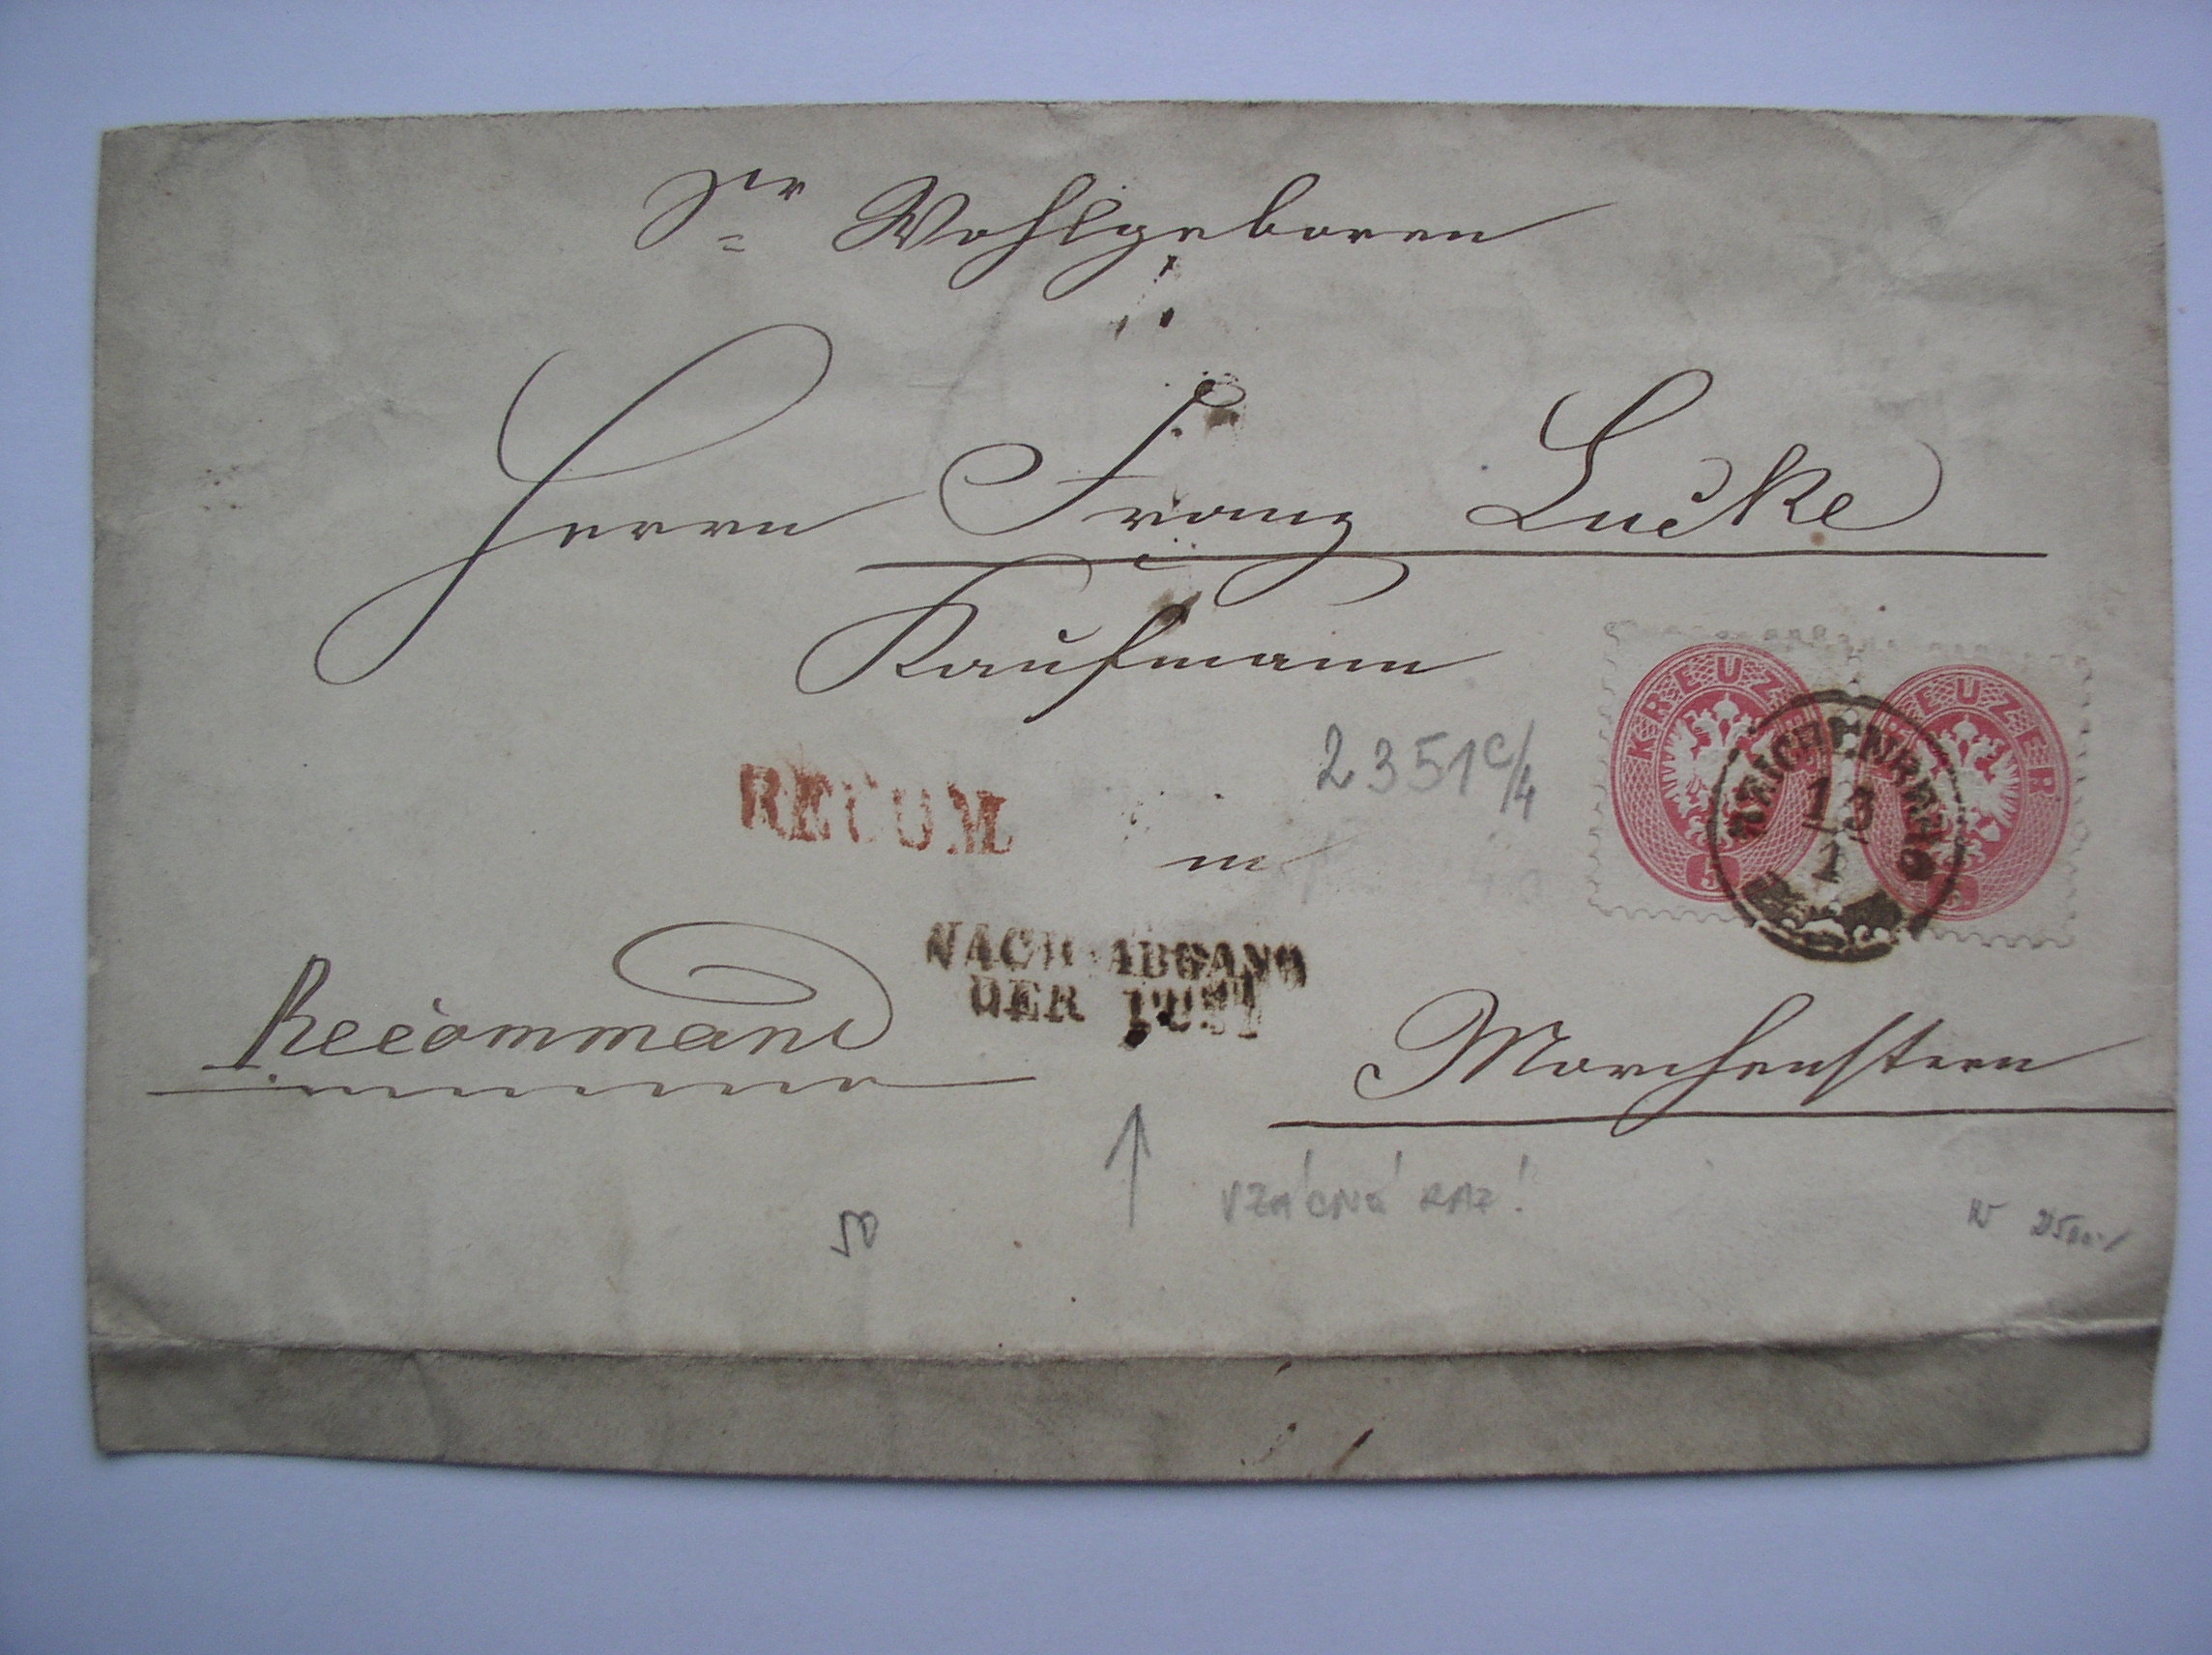 Sr Wohlgeboren
Herrn Franz Lucke
Kaufmann
KREUZER
5
KREUZER
5
REICHENBERG
13
1
2351 c/4
RECOM
in
NACH ABGANG
DER POST
Recommand
Morchenstern
VZÁCNÉ RAZ!
50